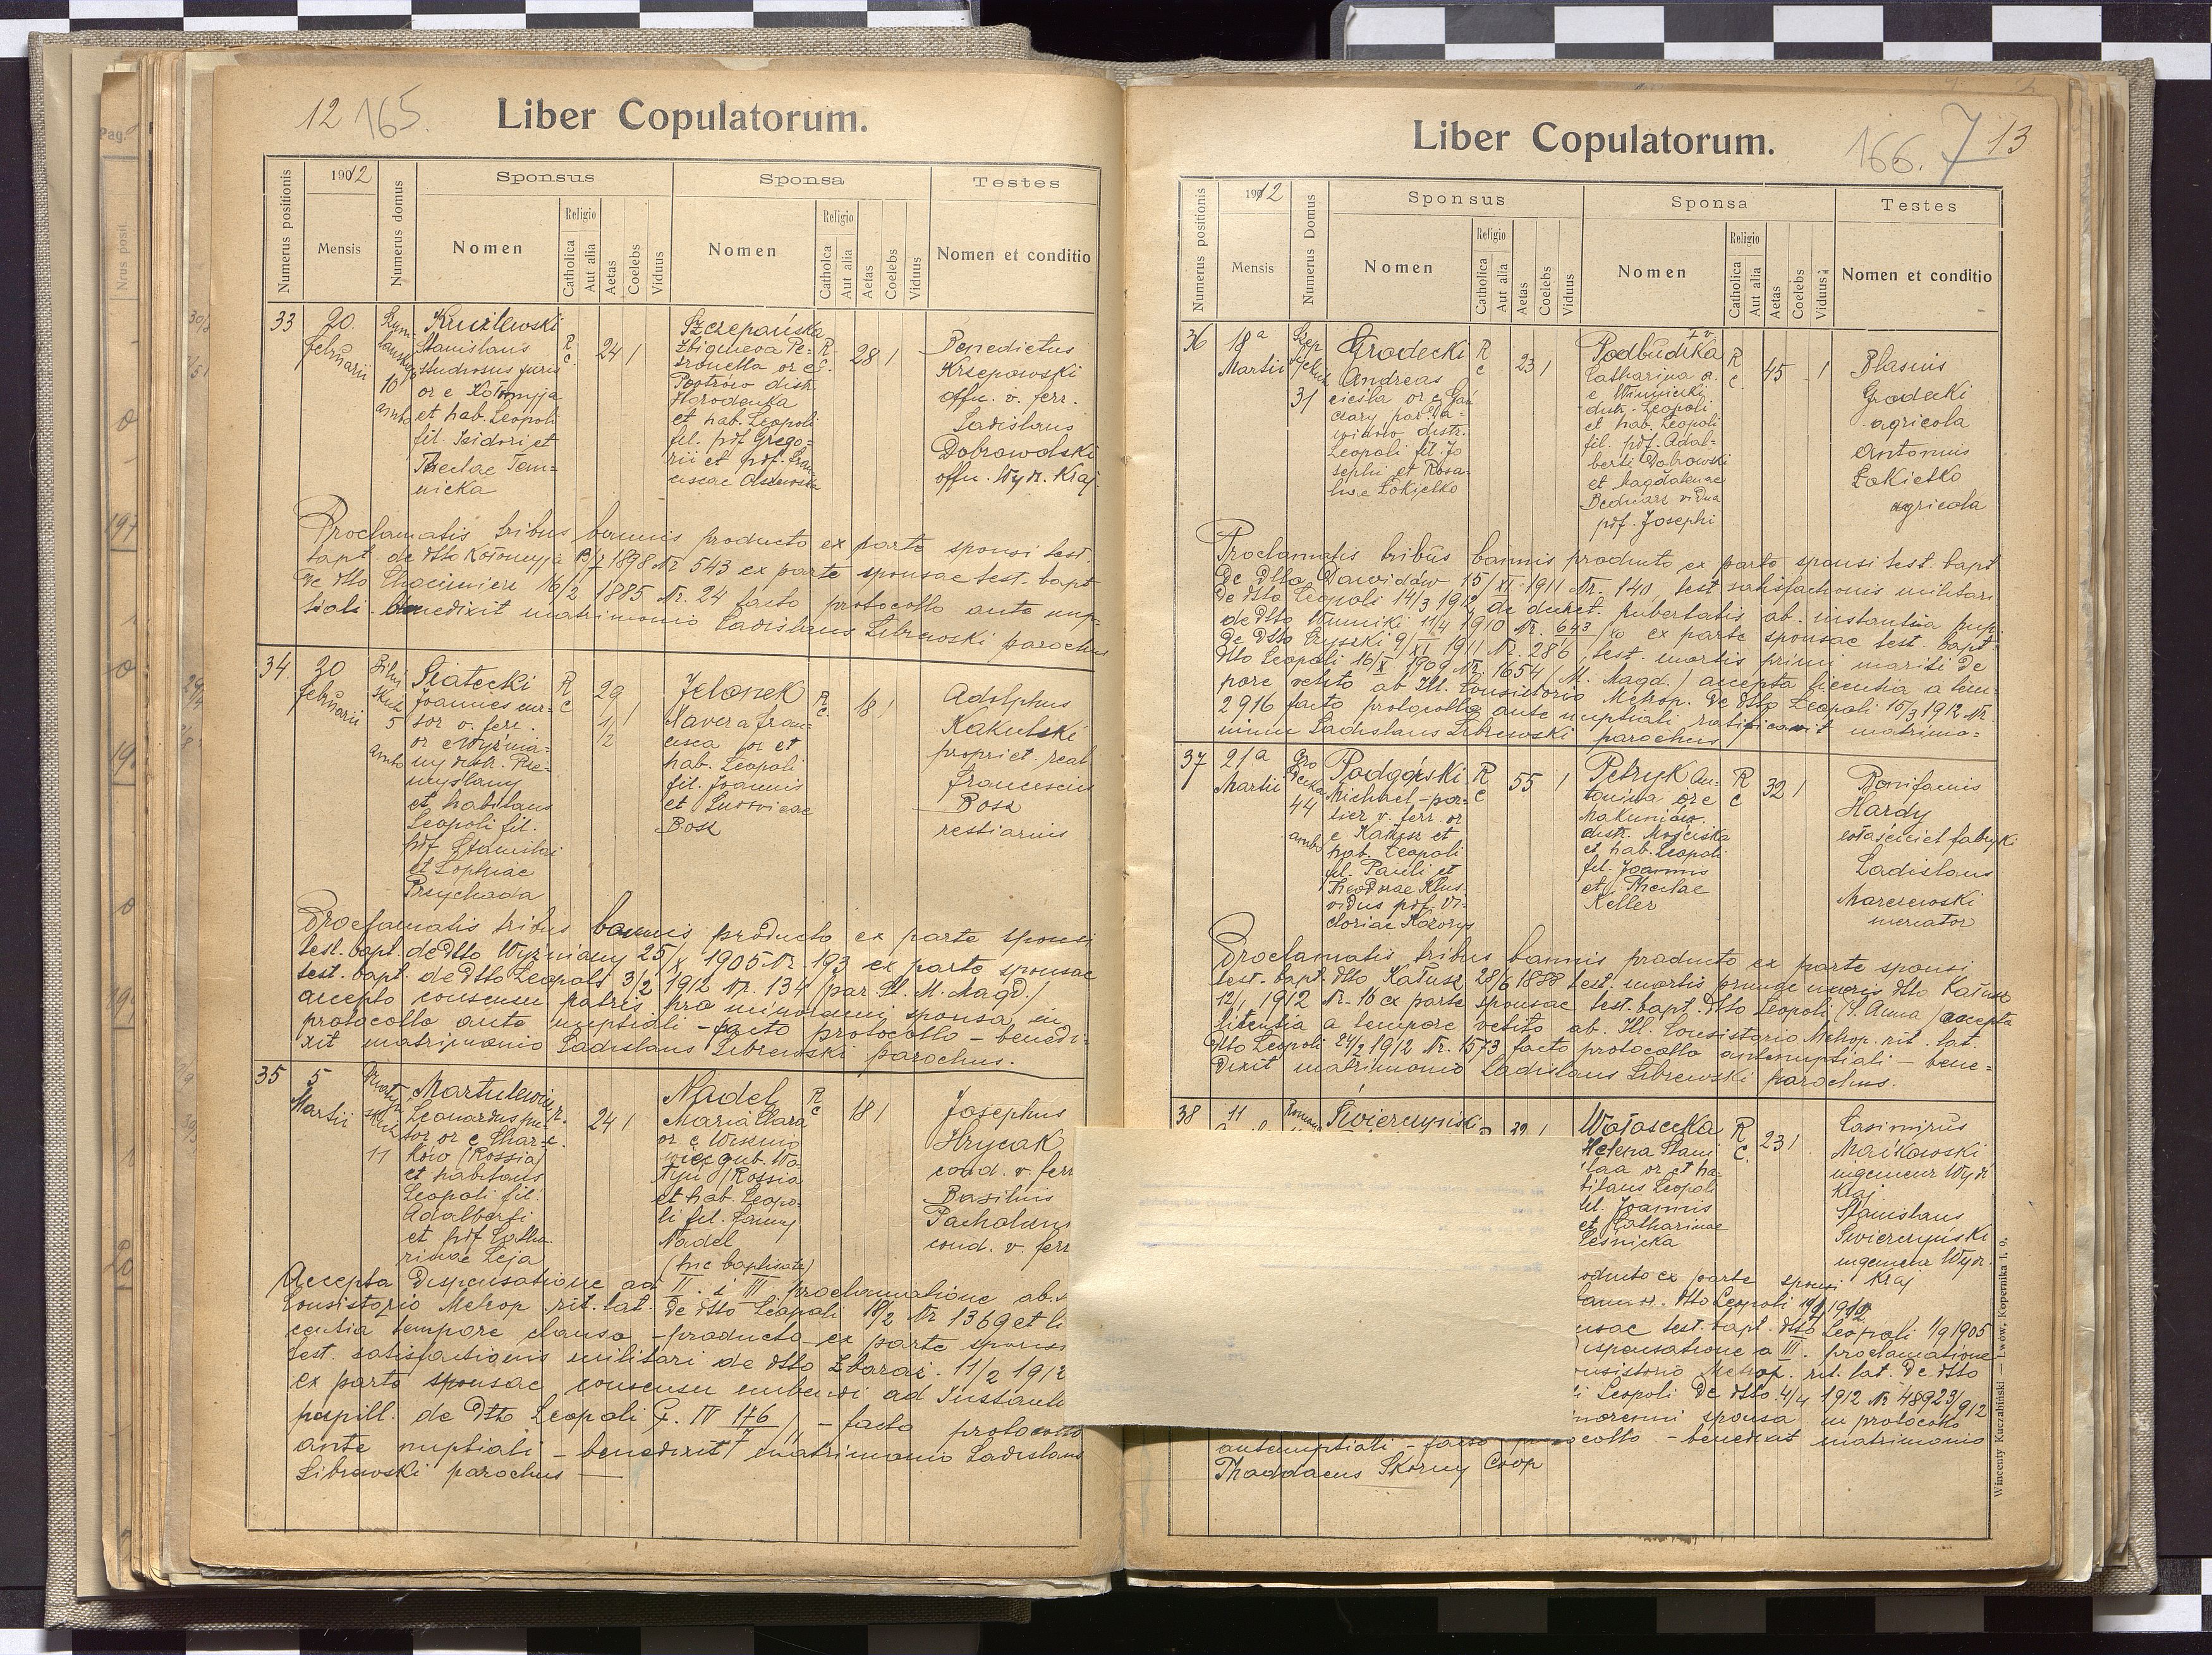 12 165.
Liber Copulatorum.
Numerus positionis
1912
Mensis
Numerus domus
Sponsus
Nomen
Religio
Catholica
Aut alia
Aetas
Coelebs
Viduus
Sponsa
Nomen
Religio
Catholica
Aut alia
Aetas
Coelebs
Viduus
Testes
Nomen et conditio
33
20.
februarii
10
ambo
Stanislaus
studiosus juris
or e Kołomyja
et hab. Leopoli
fil. Isidori et
Theclae Tom=
nicka
R
C.
24 1
Szczepańska
Zbigneva Pe=
tronella or e
distr.
Horodenka
et hab. Leopoli
fil. pdf. Grego=
rii et pdf. Fran
ciscae
R.
C.
28 1
Benedictus
Krzepowski
offic. v. ferr.
Ladislaus
Dobrowolski
offic. Wydz. Kraj.
Proclamatis tribus bannis producto ex parte sponsi test.
bapt. de dtto Kołomyja Nr 543 ex parte sponsae test. bapt
de dtto 16/2 1885 Nr. 24 facto protocollo ante nup=
tiali - benedixit matrimonio Ladislaus Librewski parochus
34.
20
februarii
5
ambo
Siatecki
Joannes cur=
sor v. ferr.
or e Wyżnia=
ny distr. Prze=
myślany
et habitans
Leopoli fil.
pdf Stanislai
et Sophiae
Przychoda
R
C
29
1/2
1
Jelonek
Xavera Fran=
cisca or et
hab. Leopoli
fil. Joannis
et Ludovicae
Bosz
R
C.
18 1
Adolphus
Kakulski
propriet. real
Franciscus
Bosz
vestiarius
Proclamatis tribus bannis producto ex parte sponsi
test. bapt. de dtto Wyżniany 25/X 1905 Nr. 193 ex parte sponsae
test. bapt. de dtto Leopoli 3/2 1912 Nr. 134 (par. St. M. Magd.)
accepto consensu patris pro minorenni sponsa in
protocollo ante nuptiali - facto protocollo - benedi=
xit matrimonio Ladislaus Librewski parochus.
35
5
Martii
11
Leonardus
or e Char=
ków (Rossia)
et habitans
Leopoli fil.
Adalberti
et pdf Catha=
rinae Leja
R.
C.
24 1
Nadel
Maria Clara
or e
gub. Wo=
łyń (Rossia
et hab. Leopo=
li fil. Fanny
Nadel
(hic baptisata)
R
C
18 1
Josephus
Hrycak
cond. v. ferr
Basilius
cond. v. ferr
Accepta dispensatione ad II. i III. proclamatione ab
Consistorio Metrop. rit. lat. de dtto Leopoli 18/2 Nr 1369 et li
centia tempore clauso - producto ex parte sponsi
test. satisfactionis militari de dtto Zbaraż. 11/2 1912
ex parte sponsae consensu nubendi ad Instant
pupill. de dtto Leopoli - facto protocollo
ante nuptiali - benedixit matrimonio Ladislaus
Librewski parochus
Liber Copulatorum.
166. 7 13
Numerus positionis
1912
Mensis
Numerus Domus
Sponsus
Nomen
Religio
Catholica
Aut alia
Aetas
Coelebs
Viduus
Sponsa
Nomen
Religio
Catholica
Aut alia
Aetas
Coelebs
Viduus
Testes
Nomen et conditio
36
18a
Martii
31
Grodecki
Andreas
cieśla or e Gań
czary par. Da=
widów distr.
Leopoli fil. Jo
sephi et Rosa=
liae Łokietko
R
C
23 1
Catharina o.
e Winniczki
distr. Leopoli
et hab. Leopoli
fil. pdf. Adal=
berti Dobrowski
et Magdalenae
Bednarz vidua
pdf. Josephi
R
C.
45 1
Blasius
Grodecki
agricola
Antonius
Łokietko
agricola
Proclamatis tribus bannis producto ex parte sponsi test. bapt
de dtto Dawidów 15/XI 1911 Nr. 140, test satisfactionis militari
de dtto Leopoli 14/3 1912, de decret. pubertatis ab. instantia pup.
de dtto Winniki 11/4 1910 Nr. 643 ex parte sponsae test. bapt.
de dtto 9/XI 1911 Nr. 286, test. mortis primi mariti de
dtto Leopoli 16/X 1909 Nr. 1654 (M. Magd.) accepta licentia a tem=
pore vetito ab Ill. Consistorio Metrop. de dtto Leopoli 15/3 1912 Nr.
2916 facto protocollo ante nuptiali ratificavit matrimo=
nium Ladislaus Librewski parochus
37
21a
Martii
44
ambo
Podgórski
Michael - por=
tier v. ferr. or
e Kałusz et
hab. Leopoli
fil. Pauli et
Theodorae Klus
vidus pdf. Vi=
ctoriae
R
C
55 1
Petryk An=
tonina or e
Makuniów
distr. Mościska
et hab. Leopoli
fil. Joannis
et Theclae
Keller
R
C
32 1
Bonifacius
Hardy
właściciel fabryk
Ladislaus
Marczewski
mercator
Proclamatis tribus bannis producto ex parte sponsi
test. bapt. dtto Kałusz 28/6 1888 test. mortis primae uxoris dtto Kałusz
12/1 1912 Nr. 16 ex parte sponsae test. bapt. dtto Leopoli (S. Anna) accepta
licentia a tempore vetito ab. Ill. Consistorio Metrop. rit. lat.
dtto Leopoli 24/2 1912 Nr. 1573 facto protocollo antenuptiali - bene=
dixit matrimonio Ladislaus Librewski parochus.
38
11
Świerczyński
Helena Stani
slaa or et ha=
bitans Leopoli
fil. Joannis
et Catharinae
Leśnicka
R
C.
23 1
Casimirus
Maćkowski
ingenieur Wydz
Kraj
Stanislaus
Świerczyński
ingenieur Wydz.
Kraj
oducto ex parte sponsi
dtto Leopoli
nsae test. bapt. dtto Leopoli 1/9 1905
ispensatione a III. proclamatione
onsistorio Metrop. rit. lat. de dtto
Leopoli de dtto 4/4 1912 Nr 48923/912
norenni sponsa in protocollo
antenuptiali - facto protocollo - benedixit matrimonio
Thaddaeus Skorny Coop
Wincenty Kuczabiński — Lwów, Kopernika l. 9.
Pag.
Nrus posit.